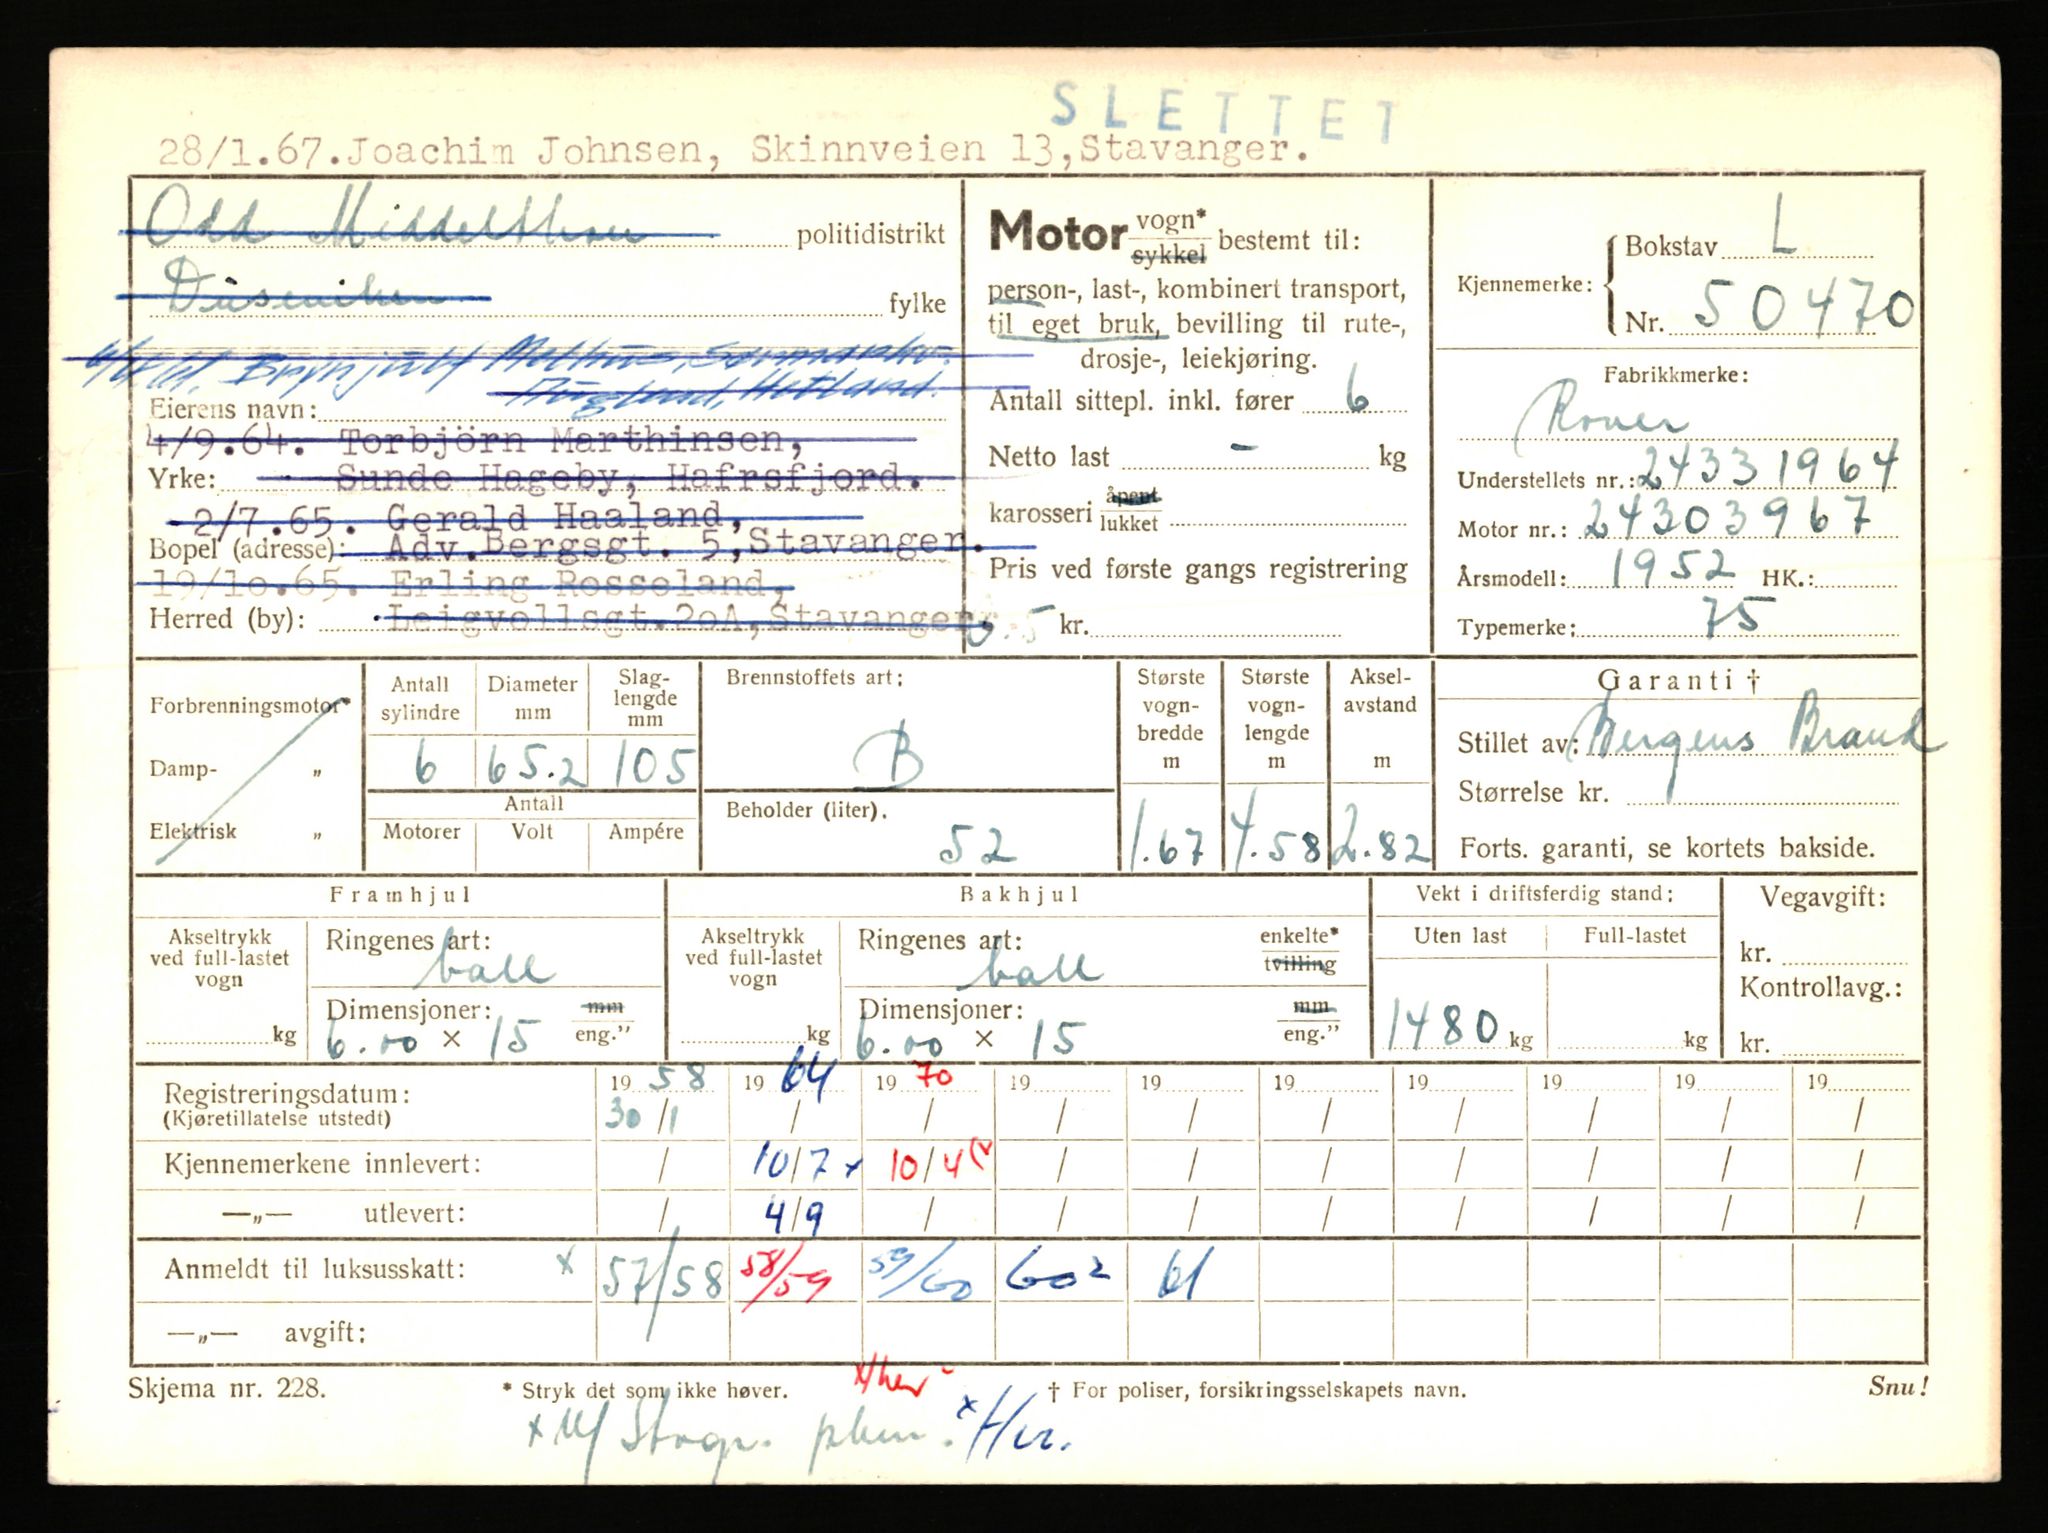 SLETTET
28/1.67.Joachim Johnsen, Skinnveien 13,Stavanger.
Odd Middelthon politidistrikt
fylke
Brynjulf
Hetland.
Eierens navn:
4/9.64. Torbjörn Marthinsen,
Yrke: Sunde Hageby, Hafrsfjord.
2/7.65. Gerald Haaland,
Bopel (adresse): Adv.Bergsgt. 5,Stavanger.
19/1o.65. Erling Rosseland,
Herred (by): Leigvollsgt.2oA,Stavanger.
Motor vogn* sykkel bestemt til:
person-, last-, kombinert transport,
til eget bruk, bevilling til rute-,
drosje-, leiekjøring.
Antall sittepl. inkl. fører 6
Netto last - kg
karosseri åpent lukket
Pris ved første gangs registrering
kr.
Kjennemerke: Bokstav L
Nr. 50470
Fabrikkmerke:
Rover
Understellets nr.: 24331964
Motor nr.: 24303967
Årsmodell: 1952 HK.:
Typemerke: 75
Forbrenningsmotor*
Damp- „
Elektrisk „
Antall sylindre 6
Diameter mm 65.2
Slag-lengde mm 105
Antall
Motorer Volt Ampére
Brennstoffets art:
B
Beholder (liter).
52
Største vogn-bredde m 1.67
Største vogn-lengde m 4.58
Aksel-avstand m 2.82
Garanti †
Stillet av: Bergens Brand
Størrelse kr.
Forts. garanti, se kortets bakside.
Framhjul
Akseltrykk ved full-lastet vogn
kg
Ringenes art:
ball
Dimensjoner: mm
6.00 × 15 eng.”
Bakhjul
Akseltrykk ved full-lastet vogn
kg
Ringenes art: enkelte*
ball tvilling
Dimensjoner: mm
6.00 × 15 eng.”
Vekt i driftsferdig stand:
Uten last Full-lastet
1480 kg kg
Vegavgift:
kr.
Kontrollavg.:
kr.
19 58 19 64 19 70 19 19 19 19 19 19 19
Registreringsdatum:
(Kjøretillatelse utstedt) 30/1 / / / / / / / / /
Kjennemerkene innlevert: / 10/7 x 10/4 / / / / / / /
—„— utlevert: / 4/9 / / / / / / / /
Anmeldt til luksusskatt: x 57/58 58/59 59/60 60² 61
—„— avgift:
Skjema nr. 228.
* Stryk det som ikke høver.
x/her
† For poliser, forsikringsselskapets navn.
Snu!
x Her.